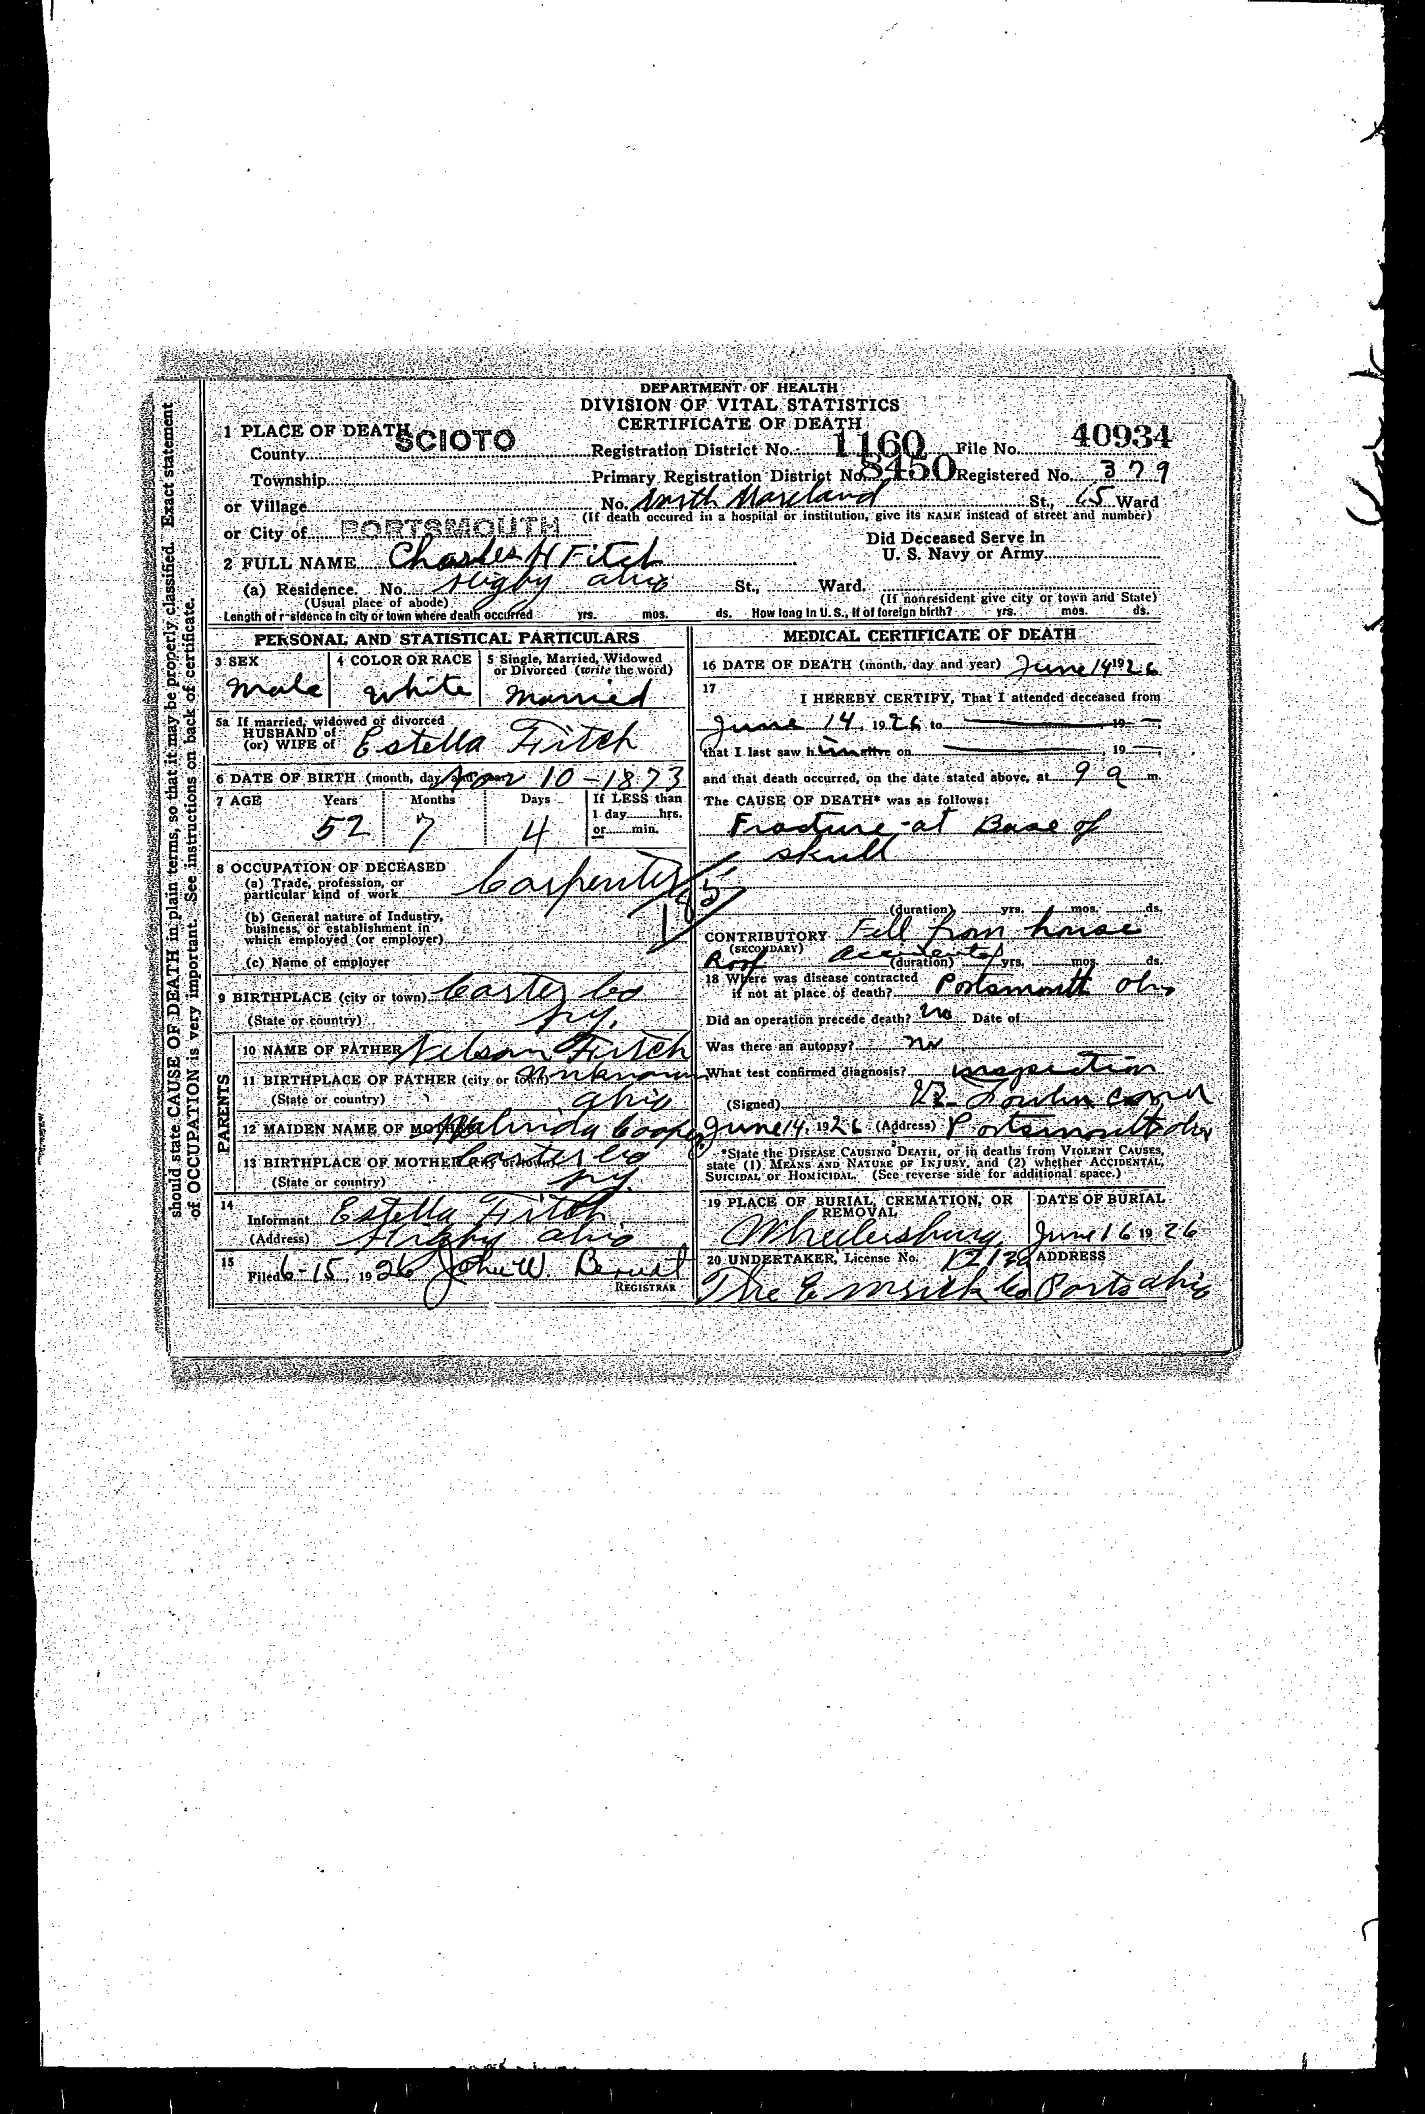 should state CAUSE OF DEATH in plain terms, so that it may be properly classified. Exact statement
of OCCUPATION is very important. See instructions on back of certificate.
DEPARTMENT OF HEALTH
DIVISION OF VITAL STATISTICS
CERTIFICATE OF DEATH
1 PLACE OF DEATH
County SCIOTO Registration District No. 1160 File No. 40934
Township Primary Registration District No. 8450 Registered No. 379
or Village No. North Moreland St., 15 Ward
(If death occured in a hospital or institution, give its NAME instead of street and number)
or City of PORTSMOUTH
Did Deceased Serve in
U. S. Navy or Army
2 FULL NAME Charles H Fitch
(a) Residence. No. Ohio St., Ward.
(Usual place of abode) (If nonresident give city or town and State)
Length of residence in city or town where death occurred yrs. mos. ds. How long in U. S., if of foreign birth? yrs. mos. ds.
PERSONAL AND STATISTICAL PARTICULARS
3 SEX
Male
4 COLOR OR RACE
White
5 Single, Married, Widowed
or Divorced (write the word)
Married
5a If married, widowed or divorced
HUSBAND of
(or) WIFE of Estella Fitch
6 DATE OF BIRTH (month, day and year) Nov 10-1873
7 AGE Years Months Days If LESS than
1 day hrs.
or min.
52 7 4
8 OCCUPATION OF DECEASED
(a) Trade, profession, or
particular kind of work Carpenter
(b) General nature of Industry,
business, or establishment in
which employed (or employer)
(c) Name of employer
9 BIRTHPLACE (city or town) Carter Co
(State or country) Ky.
PARENTS
10 NAME OF FATHER Nelson Fitch
11 BIRTHPLACE OF FATHER (city or town) Unknown
(State or country) Ohio
12 MAIDEN NAME OF MOTHER Malinda Cooper
13 BIRTHPLACE OF MOTHER (city or town) Carter Co
(State or country) Ky.
14
Informant Estella Fitch
(Address) Ohio
15
Filed 6-15, 1926 John W.
REGISTRAR
MEDICAL CERTIFICATE OF DEATH
16 DATE OF DEATH (month, day and year) June 14 1926
17
I HEREBY CERTIFY, That I attended deceased from
June 14, 1926 to 19
that I last saw him alive on , 19
and that death occurred, on the date stated above, at 9 a m.
The CAUSE OF DEATH* was as follows:
Fracture at Base of
skull
(duration) yrs. mos. ds.
CONTRIBUTORY Fell from house
(SECONDARY)
Roof Accidental
(duration) yrs. mos. ds.
18 Where was disease contracted
if not at place of death? Portsmouth Ohio
Did an operation precede death? no Date of
Was there an autopsy? no
What test confirmed diagnosis? inspection
(Signed)
June 14, 1926 (Address) Portsmouth Ohio
*State the DISEASE CAUSING DEATH, or in deaths from VIOLENT CAUSES,
state (1) MEANS AND NATURE OF INJURY, and (2) whether ACCIDENTAL,
SUICIDAL or HOMICIDAL. (See reverse side for additional space.)
19 PLACE OF BURIAL, CREMATION, OR
REMOVAL
Wheelersburg
DATE OF BURIAL
June 16 1926
20 UNDERTAKER, License No.
The Emrick Co
ADDRESS
Ports Ohio